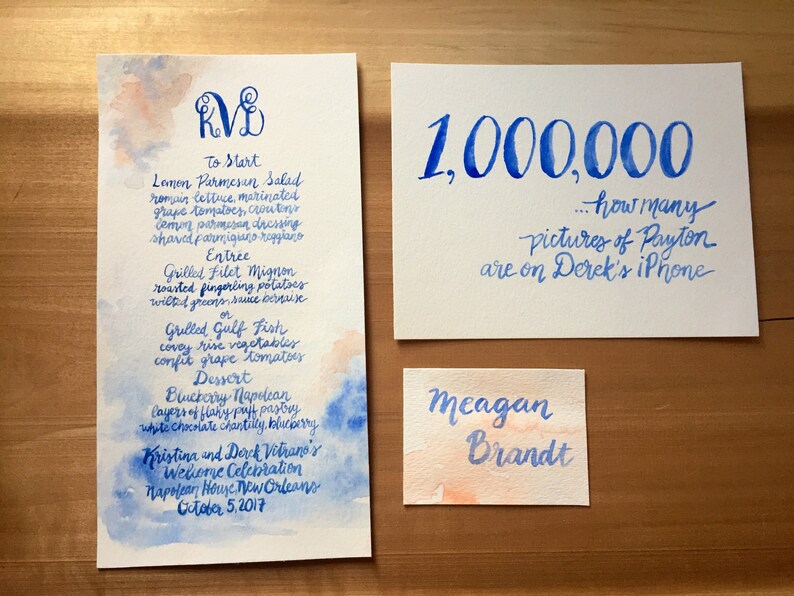 KVD
To Start
Lemon Parmesan Salad
romain lettuce, marinated
grape tomatoes, croutons
lemon parmesan dressing
shaved parmigiano-reggiano
Entrée
Grilled Filet Mignon
roasted fingerling potatoes
wilted greens, sauce bernaise
or
Grilled Gulf Fish
covey rise vegetables
confit grape tomatoes
Dessert
Blueberry Napolean
layers of flaky puff pastry
white chocolate chantilly, blueberry
Kristina and Derek Vitrano's
Welcome Celebration
Napolean House, New Orleans
October 5, 2017
1,000,000
...how many
pictures of Payton
are on Derek's iPhone
Meagan
Brandt